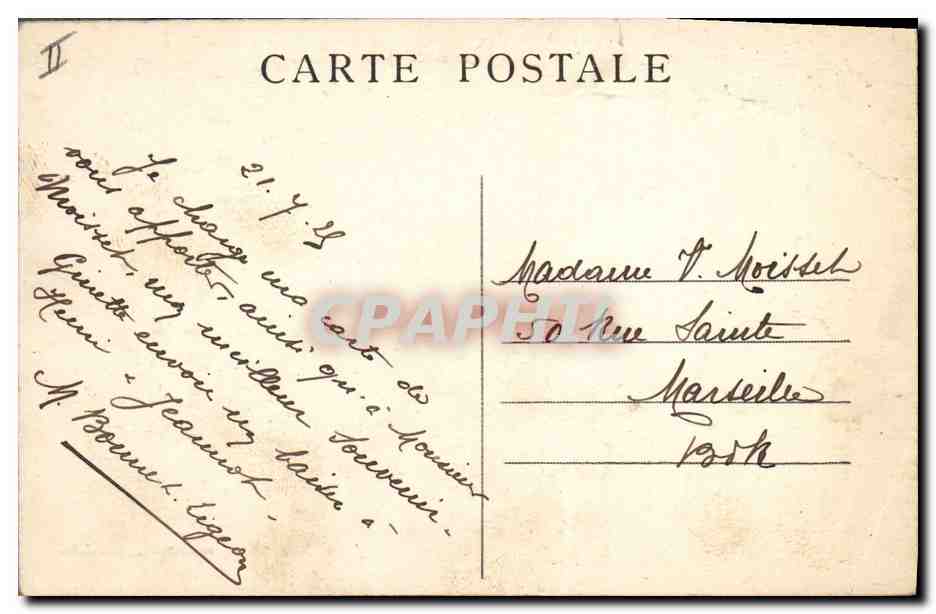 II
CARTE POSTALE
21.7.25
Je charge ma carte de
vous apporter, ainsi qu'à Monsieur
Moisset, mon meilleur souvenir -
Ginette envoie un baiser à
Henri & Jeannot -
M. Bonnet.
Madame V. Moisset
50 Rue Sainte
Marseille
BdR
CPAPHIL